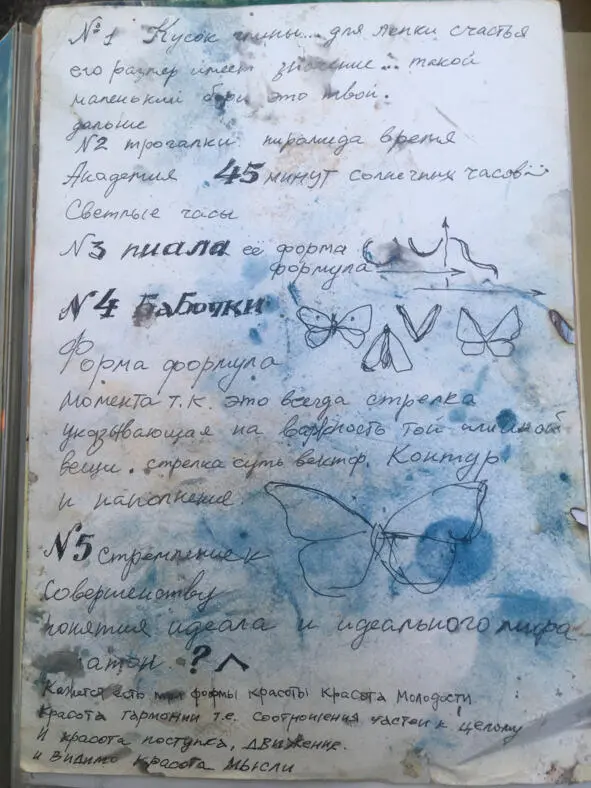 №1 Кусок глины... для лепки счастья
его размер имеет значение... такой
маленький бери это твой.
дальше
№2 трогалки пирамида время
Академия 45 минут солнечных часов
Светлые часы
№3 пиала её форма
формула
№4 Бабочки
Форма формула
момента т.к. это всегда стрелка
указывающая на важность той или иной
вещи. стрелка суть вектор. Контур
и наполнение.
№5 Стремление к
Совершенству
понятия идеала и идеального мира
латон ?
Кажется есть три формы красоты Красота Молодости
Красота гармонии т.е. соотношения частей к целому
И красота поступка, движение.
и видимо красота мысли